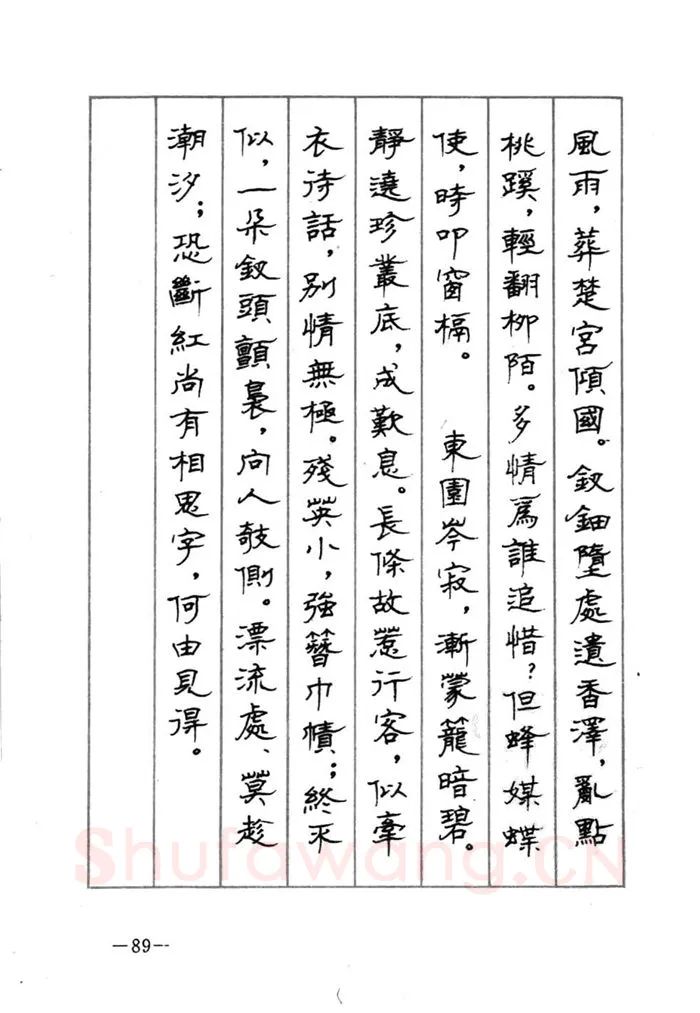 風雨，葬楚宮傾國。釵鈿墮處遺香澤，亂點
桃蹊，輕翻柳陌。多情爲誰追惜？但蜂媒蝶
使，時叩窗槅。　東園岑寂，漸蒙籠暗碧。
靜遶珍叢底，成歎息。長條故惹行客，似牽
衣待話，別情無極。殘英小，強簪巾幘；終不
似，一朵釵頭顫裊，向人攲側。漂流處、莫趁
潮汐；恐斷紅尚有相思字，何由見得。
Shufawang.CN
—89—